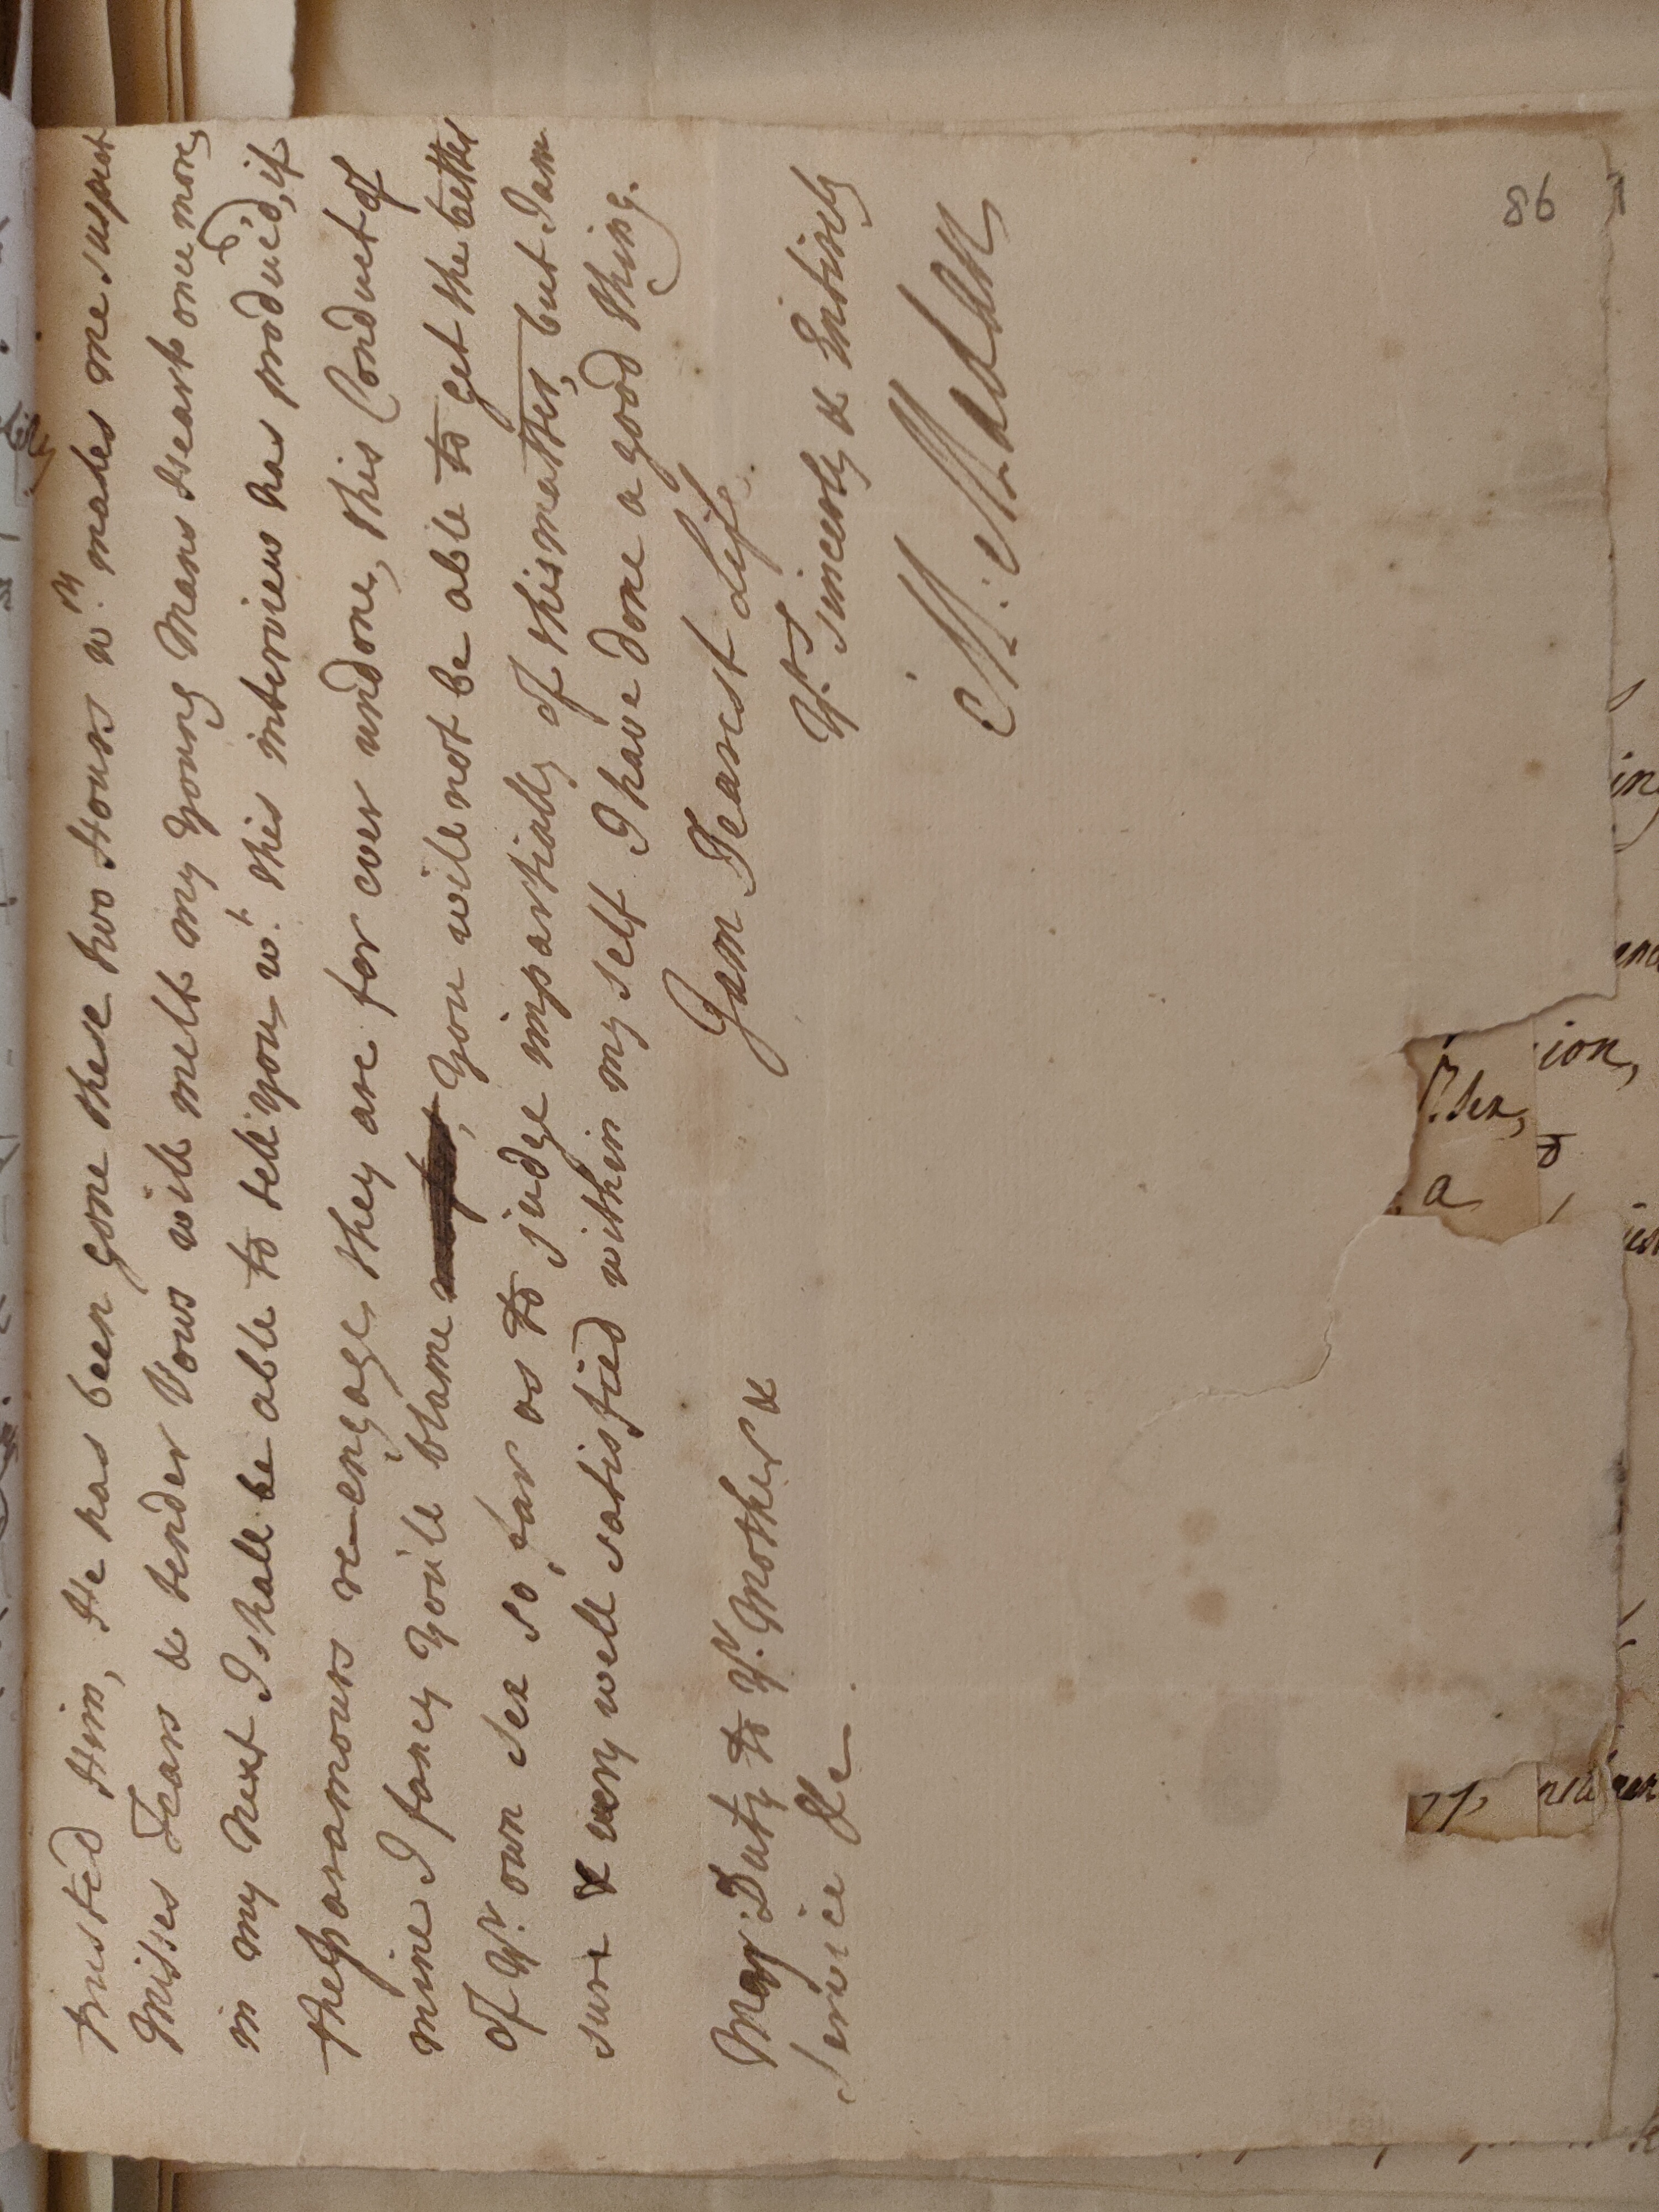 trusted Him, He has been gone these two Hours w.ch makes me suspect
Misses Tears & tender Vows will melt my young Mans Heart once more,
in my Next I shall be able to tell you w.t this interview has produc'd, if
the paramours re-engage, they are for ever undone, this Conduct of
mine I fancy you'll blame , you will not be able to get the better
of Y.r own sex so far as to judge impartially of this matter, but I am
sure & very well satisfied within my self I have done a good thing.
I am Dearest Life
May Duty to Y.r Mother &
Service &c.
Y.rs Sincerly & Entirely
M: Madan
a
ion,
86